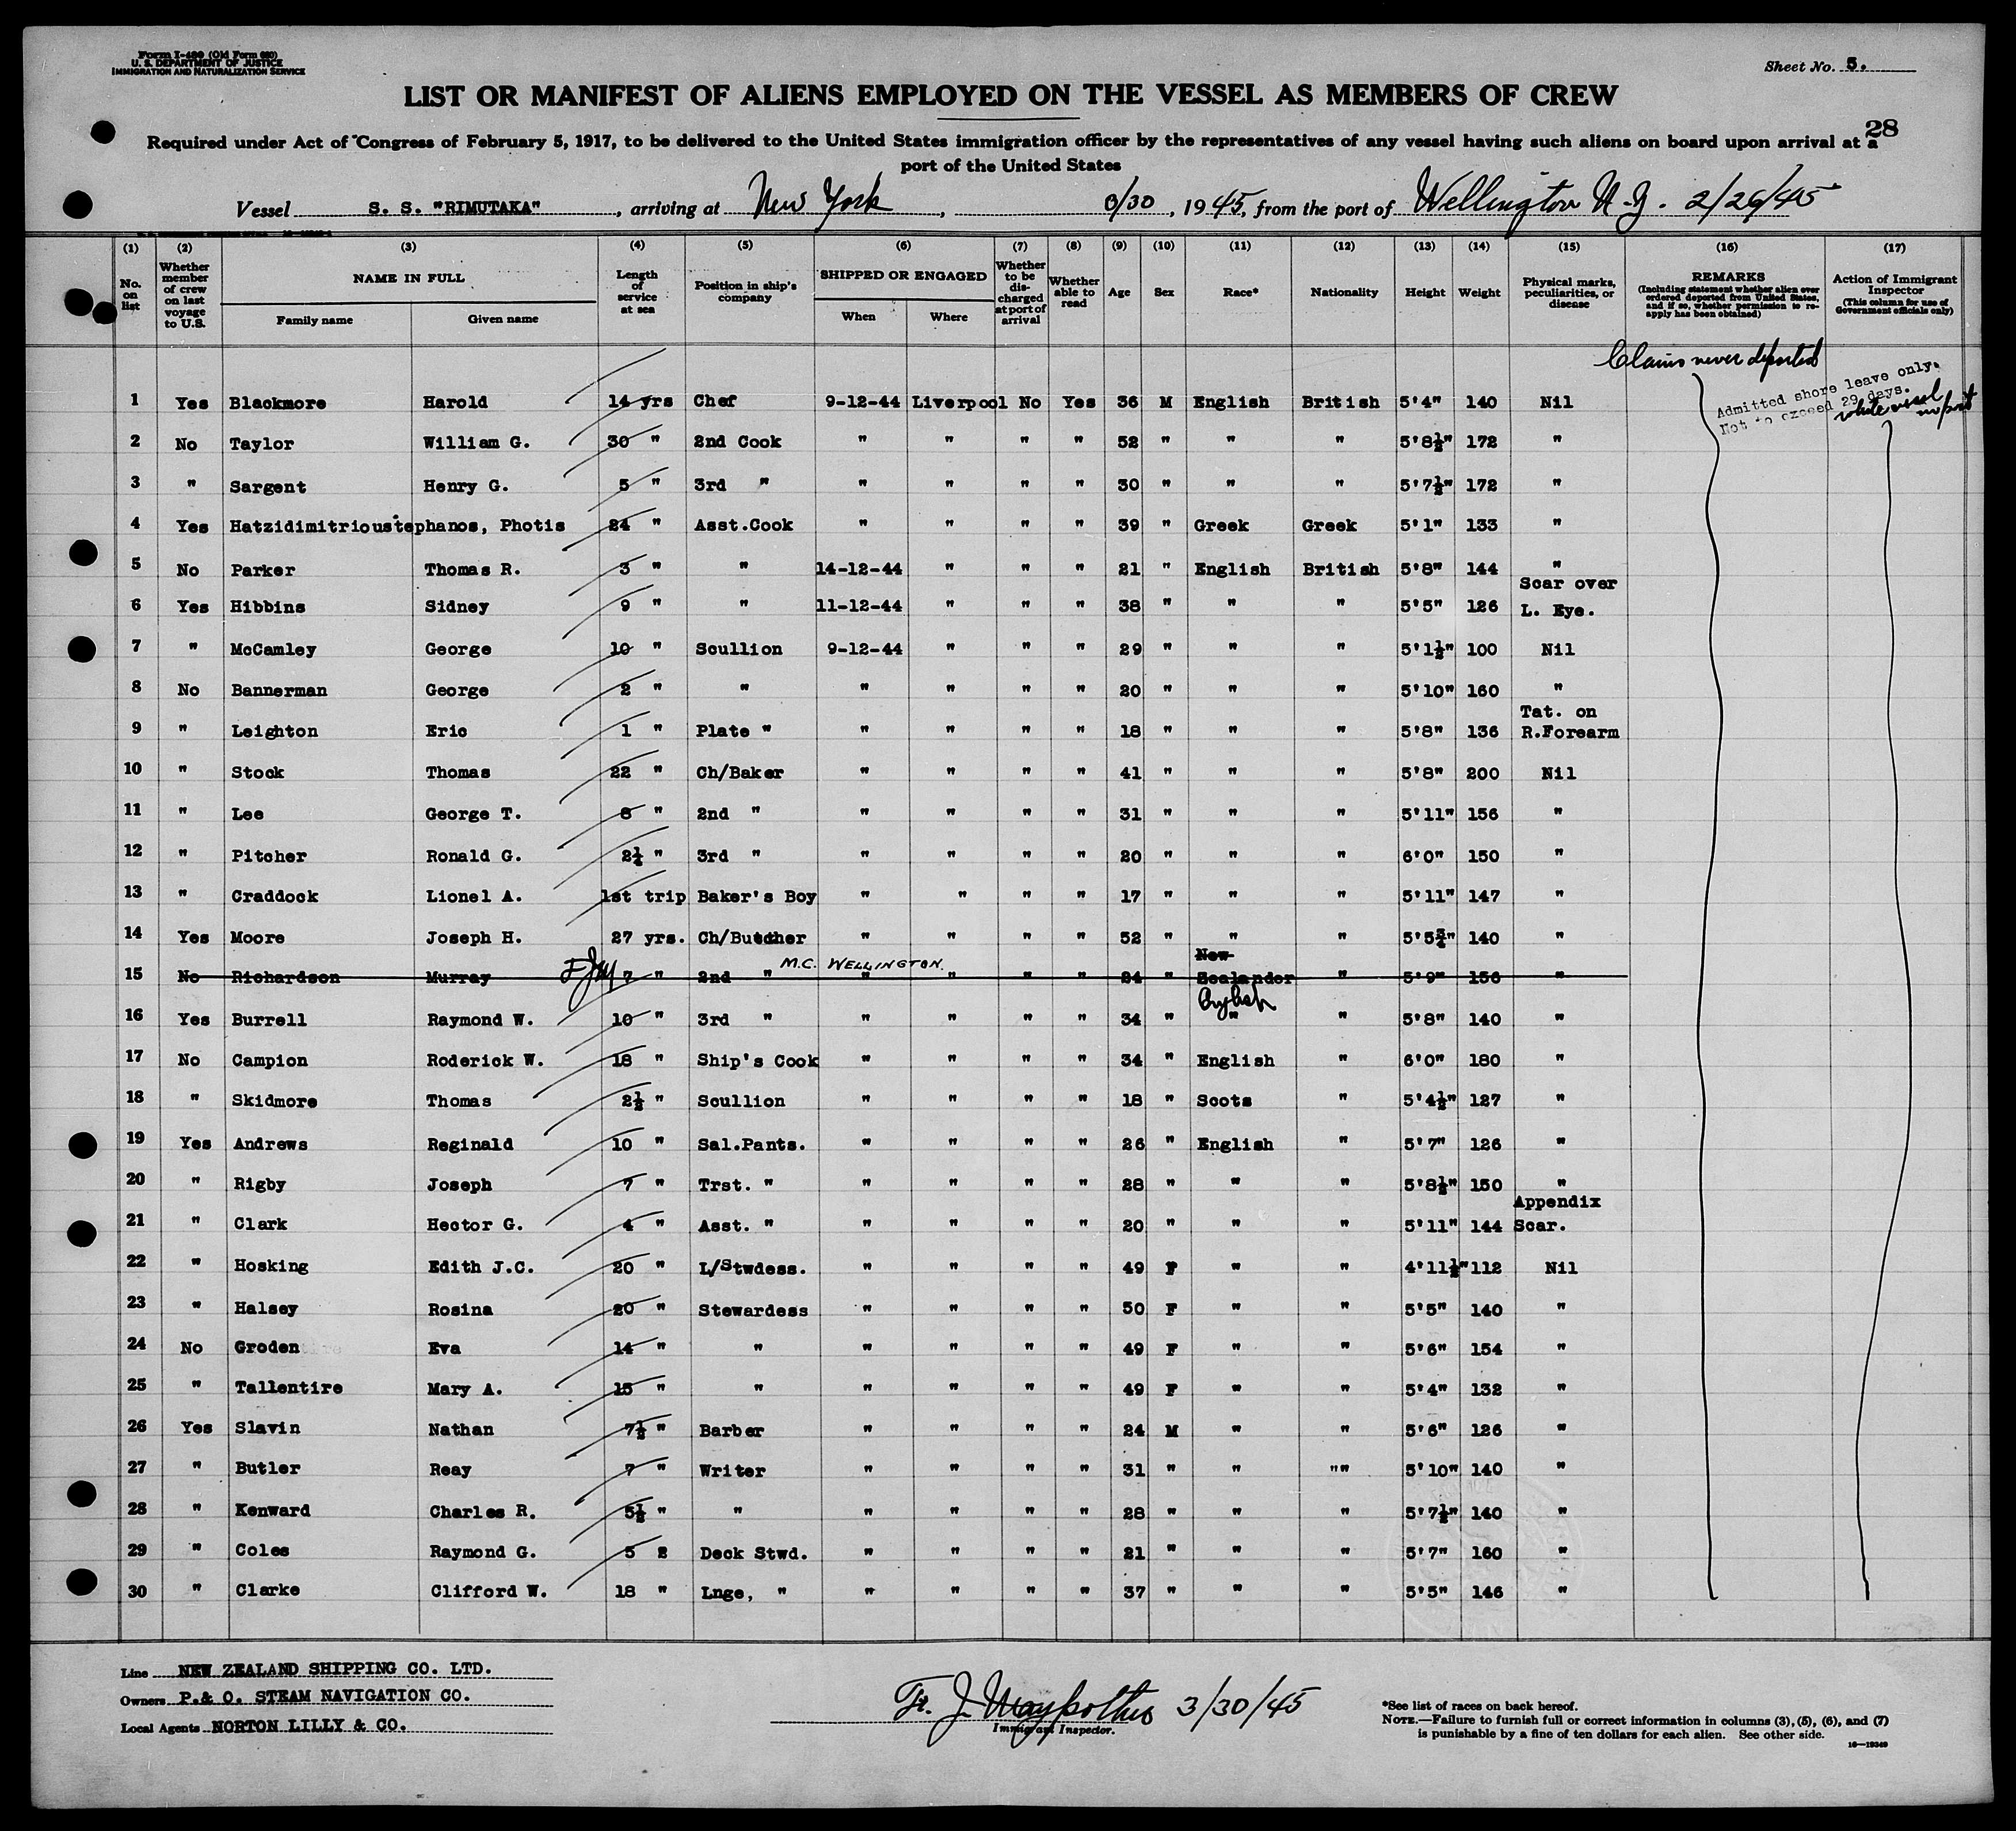 Form I-489 (Old Form 680)
U. S. DEPARTMENT OF JUSTICE
IMMIGRATION AND NATURALIZATION SERVICE
Sheet No. 5.
LIST OR MANIFEST OF ALIENS EMPLOYED ON THE VESSEL AS MEMBERS OF CREW
28
Required under Act of Congress of February 5, 1917, to be delivered to the United States immigration officer by the representatives of any vessel having such aliens on board upon arrival at a
port of the United States
Vessel S. S. "RIMUTAKA", arriving at New York, /30, 1945, from the port of Wellington N.Z. 2/26/45
(1) (2) (3) (4) (5) (6) (7) (8) (9) (10) (11) (12) (13) (14) (15) (16) (17)
No. on list
Whether member of crew on last voyage to U.S.
NAME IN FULL
Family name Given name
Length of service at sea
Position in ship's company
SHIPPED OR ENGAGED
When Where
Whether to be discharged at port of arrival
Whether able to read
Age
Sex
Race*
Nationality
Height
Weight
Physical marks, peculiarities, or disease
REMARKS
(Including statement whether alien ever ordered deported from United States, and if so, whether permission to re-apply has been obtained)
Action of Immigrant Inspector
(This column for use of Government officials only)
Claims never deported
Admitted shore leave only.
Not to exceed 29 days.
while vessel in port
1 Yes Blackmore Harold 14 yrs Chef 9-12-44 Liverpool No Yes 36 M English British 5'4" 140 Nil
2 No Taylor William G. 30 " 2nd Cook " " " " 52 " " " 5'8½" 172 "
3 " Sargent Henry G. 5 " 3rd " " " " " 30 " " " 5'7½" 172 "
4 Yes Hatzidimitrioustephanos, Photis 24 " Asst.Cook " " " " 39 " Greek Greek 5'1" 133 "
5 No Parker Thomas R. 3 " " 14-12-44 " " " 21 " English British 5'8" 144 "
6 Yes Hibbins Sidney 9 " " 11-12-44 " " " 38 " " " 5'5" 126 Scar over L. Eye.
7 " McCamley George 10 " Scullion 9-12-44 " " " 29 " " " 5'1½" 100 Nil
8 No Bannerman George 2 " " " " " " 20 " " " 5'10" 160 "
9 " Leighton Eric 1 " Plate " " " " " 18 " " " 5'8" 136 Tat. on R.Forearm
10 " Stock Thomas 22 " Ch/Baker " " " " 41 " " " 5'8" 200 Nil
11 " Lee George T. 8 " 2nd " " " " " 31 " " " 5'11" 156 "
12 " Pitcher Ronald G. 2½ " 3rd " " " " " 20 " " " 6'0" 150 "
13 " Craddock Lionel A. 1st trip Baker's Boy " " " " 17 " " " 5'11" 147 "
14 Yes Moore Joseph H. 27 yrs. Ch/Butcher " " " " 52 " " " 5'5¾" 140 "
15 No Richardson Murray 7 " 2nd " M.C. WELLINGTON. " " " " 24 " New Zealander " 5'9" 156 "
16 Yes Burrell Raymond W. 10 " 3rd " " " " " 34 " English " " 5'8" 140 "
17 No Campion Roderick W. 18 " Ship's Cook " " " " 34 " English " 6'0" 180 "
18 " Skidmore Thomas 2½ " Scullion " " " " 18 " Scots " 5'4½" 127 "
19 Yes Andrews Reginald 10 " Sal.Pants. " " " " 26 " English " 5'7" 126 "
20 " Rigby Joseph 7 " Trst. " " " " " 28 " " " 5'8½" 150 "
21 " Clark Hector G. 4 " Asst. " " " " " 20 " " " 5'11" 144 Appendix Scar.
22 " Hosking Edith J.C. 20 " L/Stwdess. " " " " 49 F " " 4'11½" 112 Nil
23 " Halsey Rosina 20 " Stewardess " " " " 50 F " " 5'5" 140 "
24 No Groden Eva 14 " " " " " " 49 F " " 5'6" 154 "
25 " Tallentire Mary A. 15 " " " " " " 49 F " " 5'4" 132 "
26 Yes Slavin Nathan 7½ " Barber " " " " 24 M " " 5'6" 126 "
27 " Butler Reay 7 " Writer " " " " 31 " " "" 5'10" 140 "
28 " Kenward Charles R. 5½ " " " " " " 28 " " " 5'7½" 140 "
29 " Coles Raymond G. 5 2 Deck Stwd. " " " " 21 " " " 5'7" 160 "
30 " Clarke Clifford W. 18 " Lnge, " " " " " 37 " " " 5'5" 146 "
Line NEW ZEALAND SHIPPING CO. LTD.
Owners P.& O. STEAM NAVIGATION CO.
Local Agents NORTON LILLY & CO.
3/30/45
Immigrant Inspector.
*See list of races on back hereof.
NOTE.—Failure to furnish full or correct information in columns (3), (5), (6), and (7)
is punishable by a fine of ten dollars for each alien. See other side.
16—19349